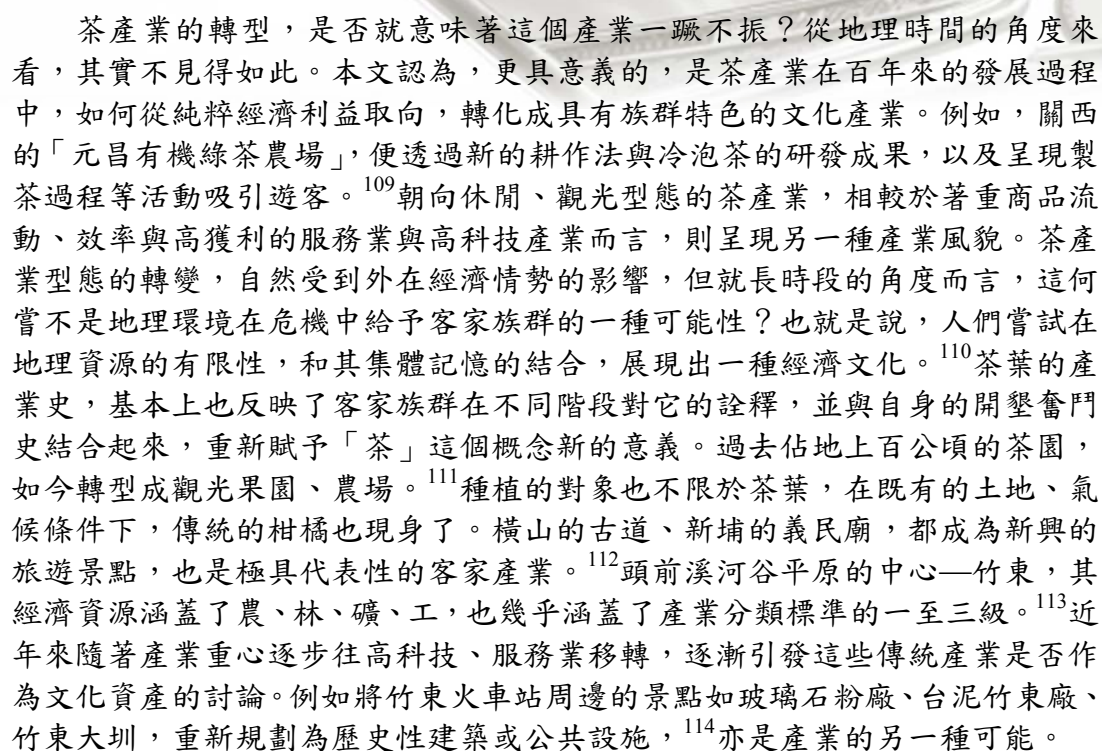 茶產業的轉型，是否就意味著這個產業一蹶不振？從地理時間的角度來
看，其實不見得如此。本文認為，更具意義的，是茶產業在百年來的發展過程
中，如何從純粹經濟利益取向，轉化成具有族群特色的文化產業。例如，關西
的「元昌有機綠茶農場」，便透過新的耕作法與冷泡茶的研發成果，以及呈現製
茶過程等活動吸引遊客。109朝向休閒、觀光型態的茶產業，相較於著重商品流
動、效率與高獲利的服務業與高科技產業而言，則呈現另一種產業風貌。茶產
業型態的轉變，自然受到外在經濟情勢的影響，但就長時段的角度而言，這何
嘗不是地理環境在危機中給予客家族群的一種可能性？也就是說，人們嘗試在
地理資源的有限性，和其集體記憶的結合，展現出一種經濟文化。110茶葉的產
業史，基本上也反映了客家族群在不同階段對它的詮釋，並與自身的開墾奮鬥
史結合起來，重新賦予「茶」這個概念新的意義。過去佔地上百公頃的茶園，
如今轉型成觀光果園、農場。111種植的對象也不限於茶葉，在既有的土地、氣
候條件下，傳統的柑橘也現身了。橫山的古道、新埔的義民廟，都成為新興的
旅遊景點，也是極具代表性的客家產業。112頭前溪河谷平原的中心—竹東，其
經濟資源涵蓋了農、林、礦、工，也幾乎涵蓋了產業分類標準的一至三級。113近
年來隨著產業重心逐步往高科技、服務業移轉，逐漸引發這些傳統產業是否作
為文化資產的討論。例如將竹東火車站周邊的景點如玻璃石粉廠、台泥竹東廠、
竹東大圳，重新規劃為歷史性建築或公共設施，114亦是產業的另一種可能。